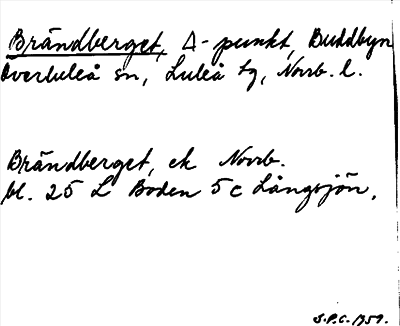 Brändberget, Δ-punkt, Buddbyn
Överluleå sn, Luleå tg, Norrb. l.
Brändberget, ek Norrb.
bl. 25 L Boden 5 c Långsjön.
S.P.C. 1959.